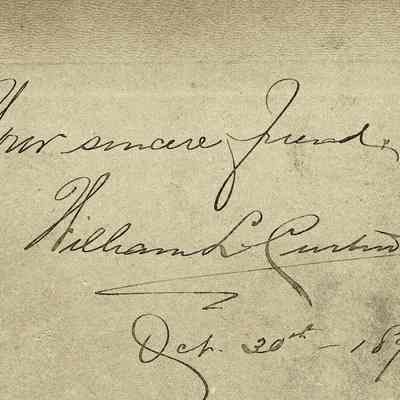 Your sincere friend,
William L. Curtin
Oct. 30th - 189